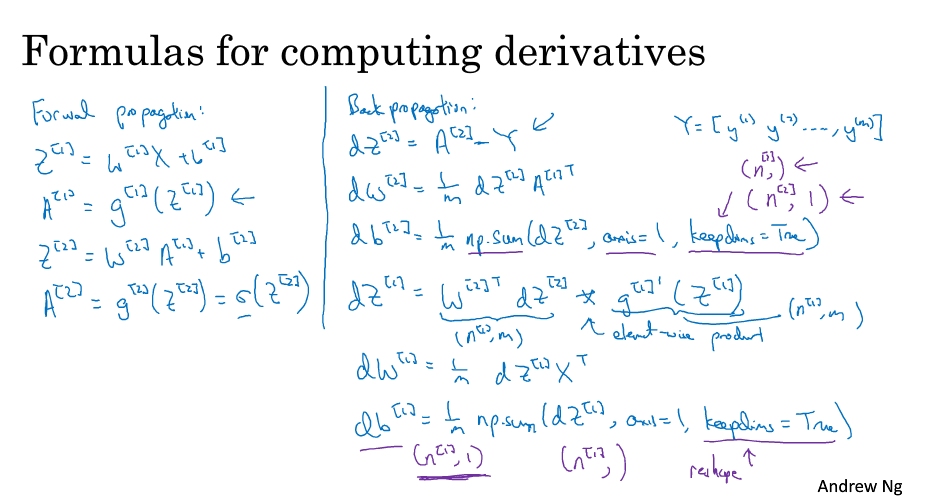 Formulas for computing derivatives
Forward propagation:
Z^[1] = W^[1]X + b^[1]
A^[1] = g^[1](Z^[1]) ←
Z^[2] = W^[2] A^[1] + b^[2]
A^[2] = g^[2](Z^[2]) = σ(Z^[2])
Back propagation:
dZ^[2] = A^[2] - Y ↙
dW^[2] = 1/m dZ^[2] A^[1]T
db^[2] = 1/m np.sum(dZ^[2], axis=1, keepdims=True)
dZ^[1] = W^[2]T dZ^[2] * g^[1]'(Z^[1])
(n^[1], m) ↑ element-wise product (n^[1], m)
dW^[1] = 1/m dZ^[1] X^T
db^[1] = 1/m np.sum(dZ^[1], axis=1, keepdims=True)
(n^[1], 1) (n^[1],) reshape ↑
Y = [y^(1) y^(2) ..., y^(m)]
(n^[2],) ←
↙ (n^[2], 1) ←
Andrew Ng